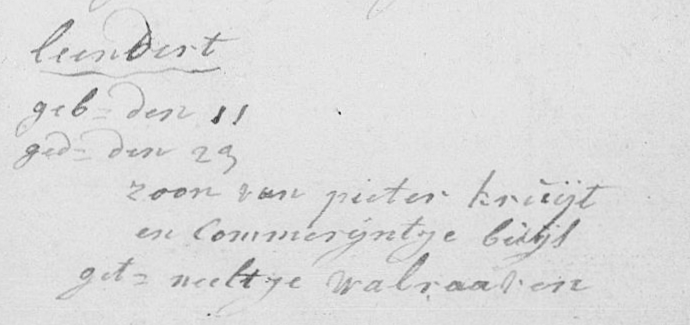 leendert
geb= den 11
ged= den 29
zoon van pieter kruijt
en Commerijntje buijs
get= neeltje walraaven